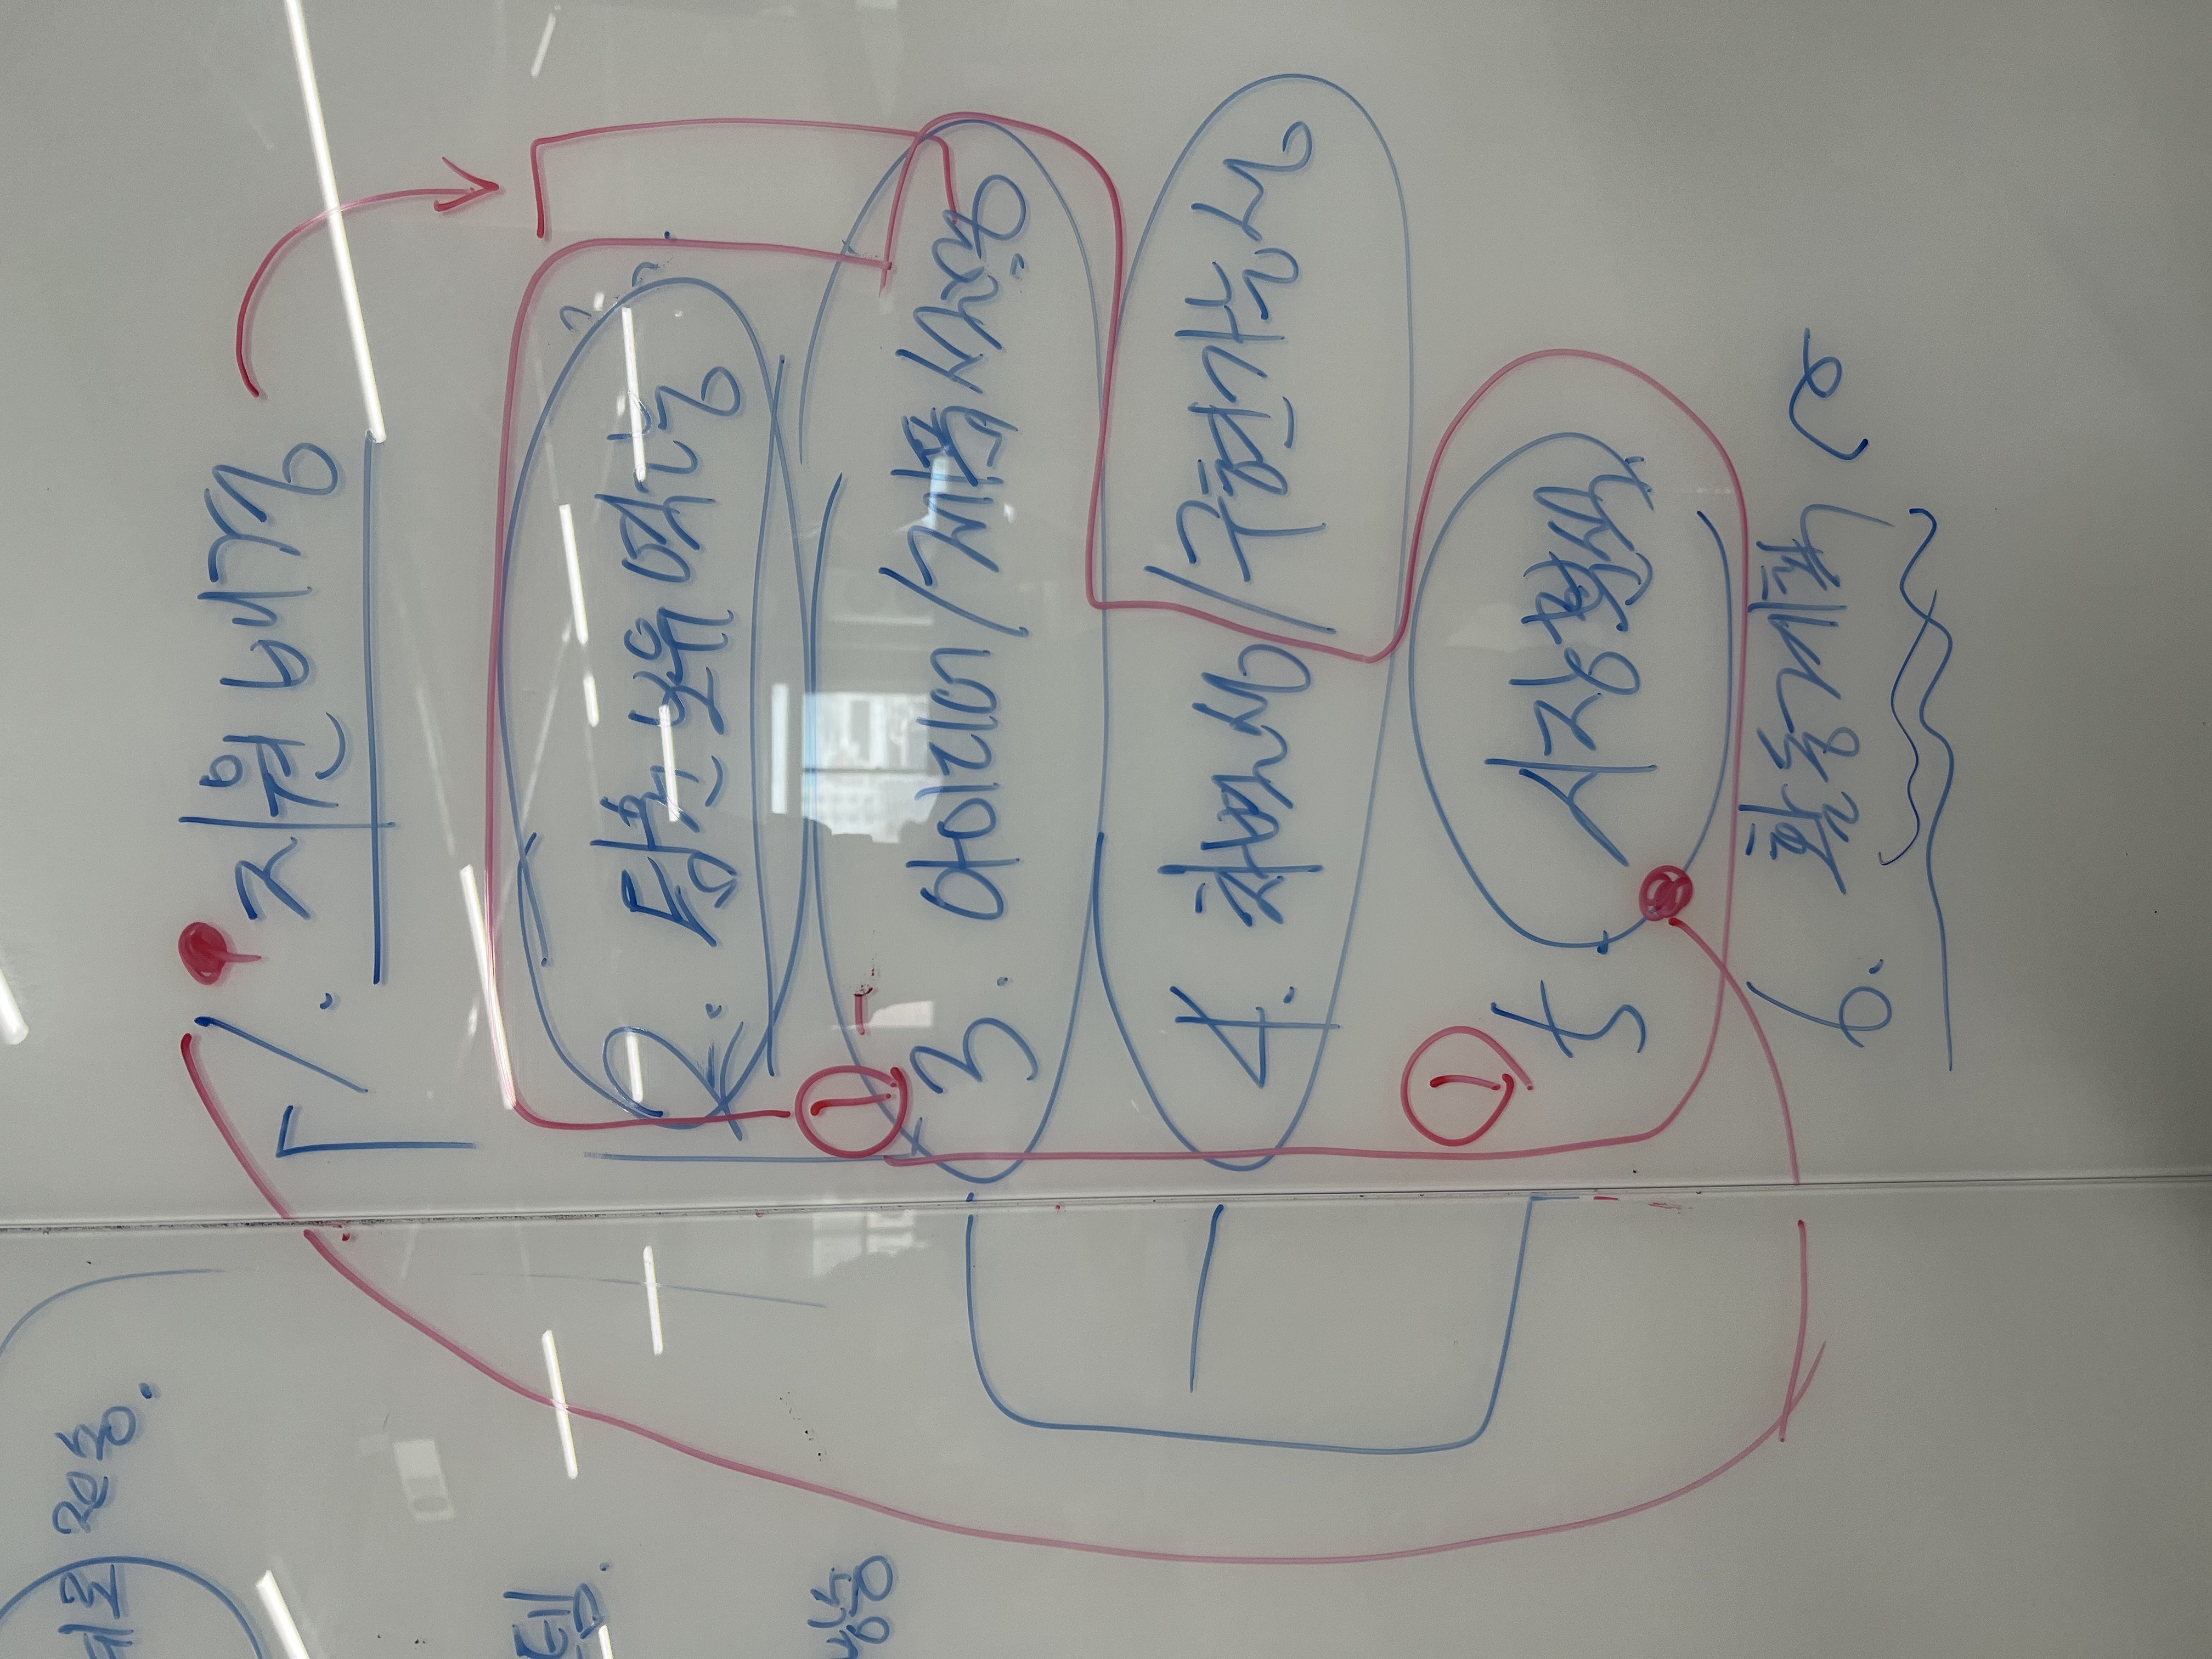 전송.
템.
방송
1. 지원 배경
2. 팀원 보유 역능
①
3. 아이디어/제품 설명
4. 차별성/구현가능성
①
5. 시장분석
6. 활동계획